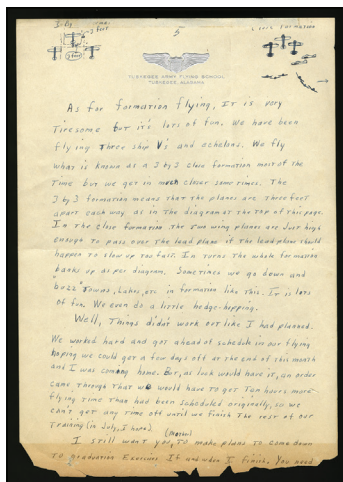 3 feet
3 feet
5
Close Formation
TUSKEGEE ARMY FLYING SCHOOL
TUSKEGEE, ALABAMA
As for formation flying, It is very
Tiresome but it's lots of fun. We have been
flying Three ship V's and echelons. We fly
what is known as a 3 by 3 close formation most of the
Time but we get in much closer some times. The
3 by 3 formation means that the planes are three feet
apart each way as in the diagram at the top of this page.
In the close formation the two wing planes are just high
enough to pass over the lead plane if the lead plane should
happen to slow up too fast. In turns the whole formation
banks up as per diagram. Sometimes we go down and
"buzz" towns, Lakes, etc in formation like this. It is lots
of fun. We even do a little hedge-hopping.
Well, Things didn't work out like I had planned.
We worked hard and got ahead of schedule in our flying
hoping we could get a few days off at the end of this month
and I was coming home. But, as luck would have it, an order
came through That we would have to get Ten hours more
flying time than had been scheduled originally, so we
can't get any time off until we finish the rest of our
Training (in July, I hope)
I still want you, to make plans to come down
To Graduation Exercises If and when I finish. You need